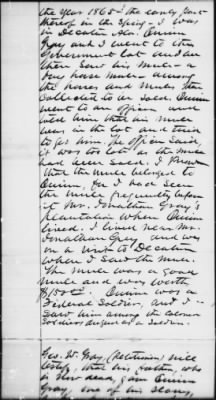 the year 1865 the early part
thereof in the Spring - I was
in Decatur Ala. Quinn
Gray and I went to the
Government lot and saw
there his mule - a
bay horse mule, among
the horses and mules there
collected to be sold. Quinn
went to an officer and
told him that his mule
was in the lot and tried
to get him. The officer said,
it was too late as the mule
had been sold. I know
that the mule belonged to
Quinn, for I had seen
the mule frequently before
at Mr. Jonathan Gray's
plantation where Quinn
lived. I lived near Mr.
Jonathan Gray and was
on a visit to Decatur
when I saw the mule.
The mule was a good
mule and was worth
Quinn was a
Federal Soldier, and I -
saw him among the Colored
Soldiers dressed as a Soldier.
Geo. W. Gray, (Petitioner) will
testify, that his father, who
is now dead, gave Quinn
Gray, one of his slaves,